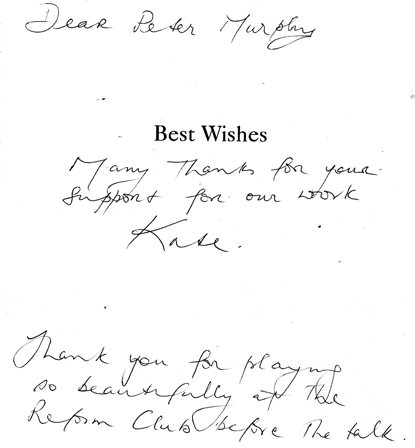 Dear Peter Murphy
Best Wishes
Many Thanks for your
support for our work
Kate.
Thank you for playing
so beautifully at the
Reform Club before the talk.